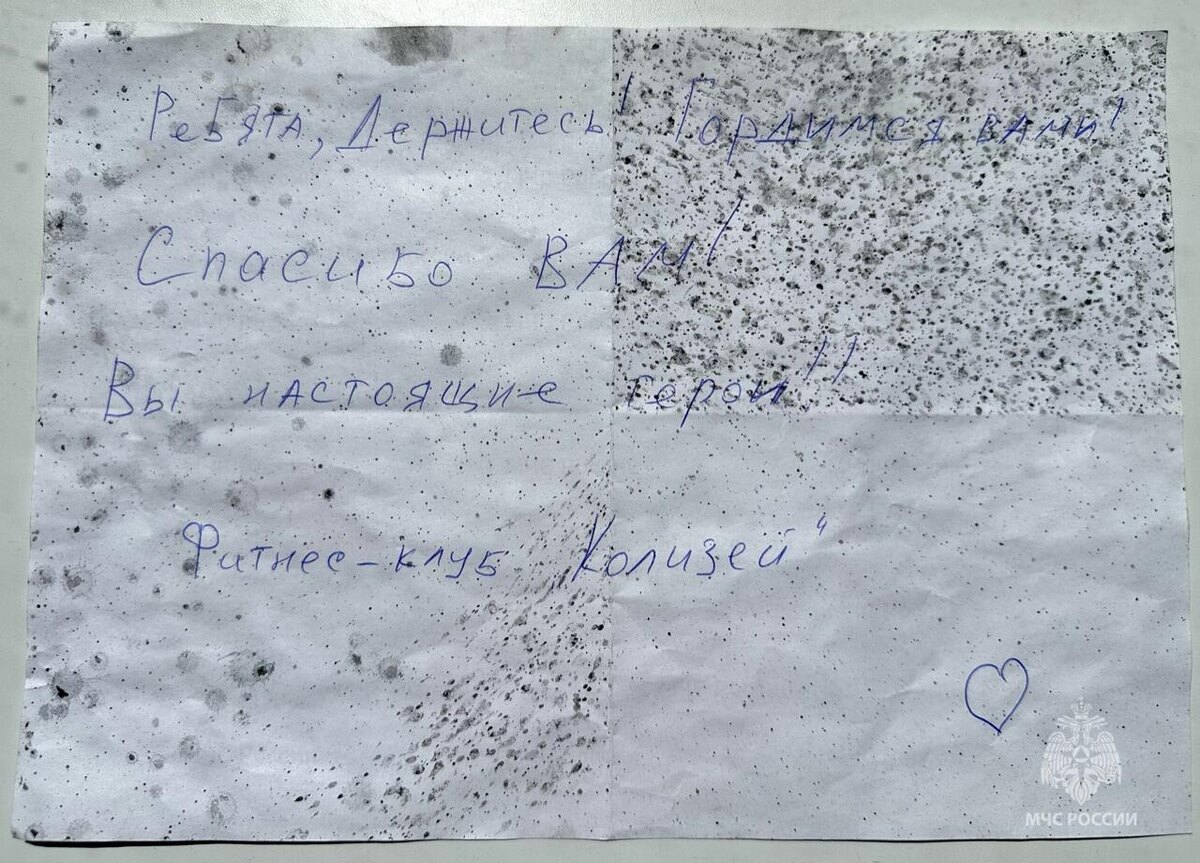 Ребята, Держитесь! Гордимся вами!
Спасибо ВАМ!
Вы настоящие герои!!
Фитнес-клуб Колизей"
МЧС РОССИИ